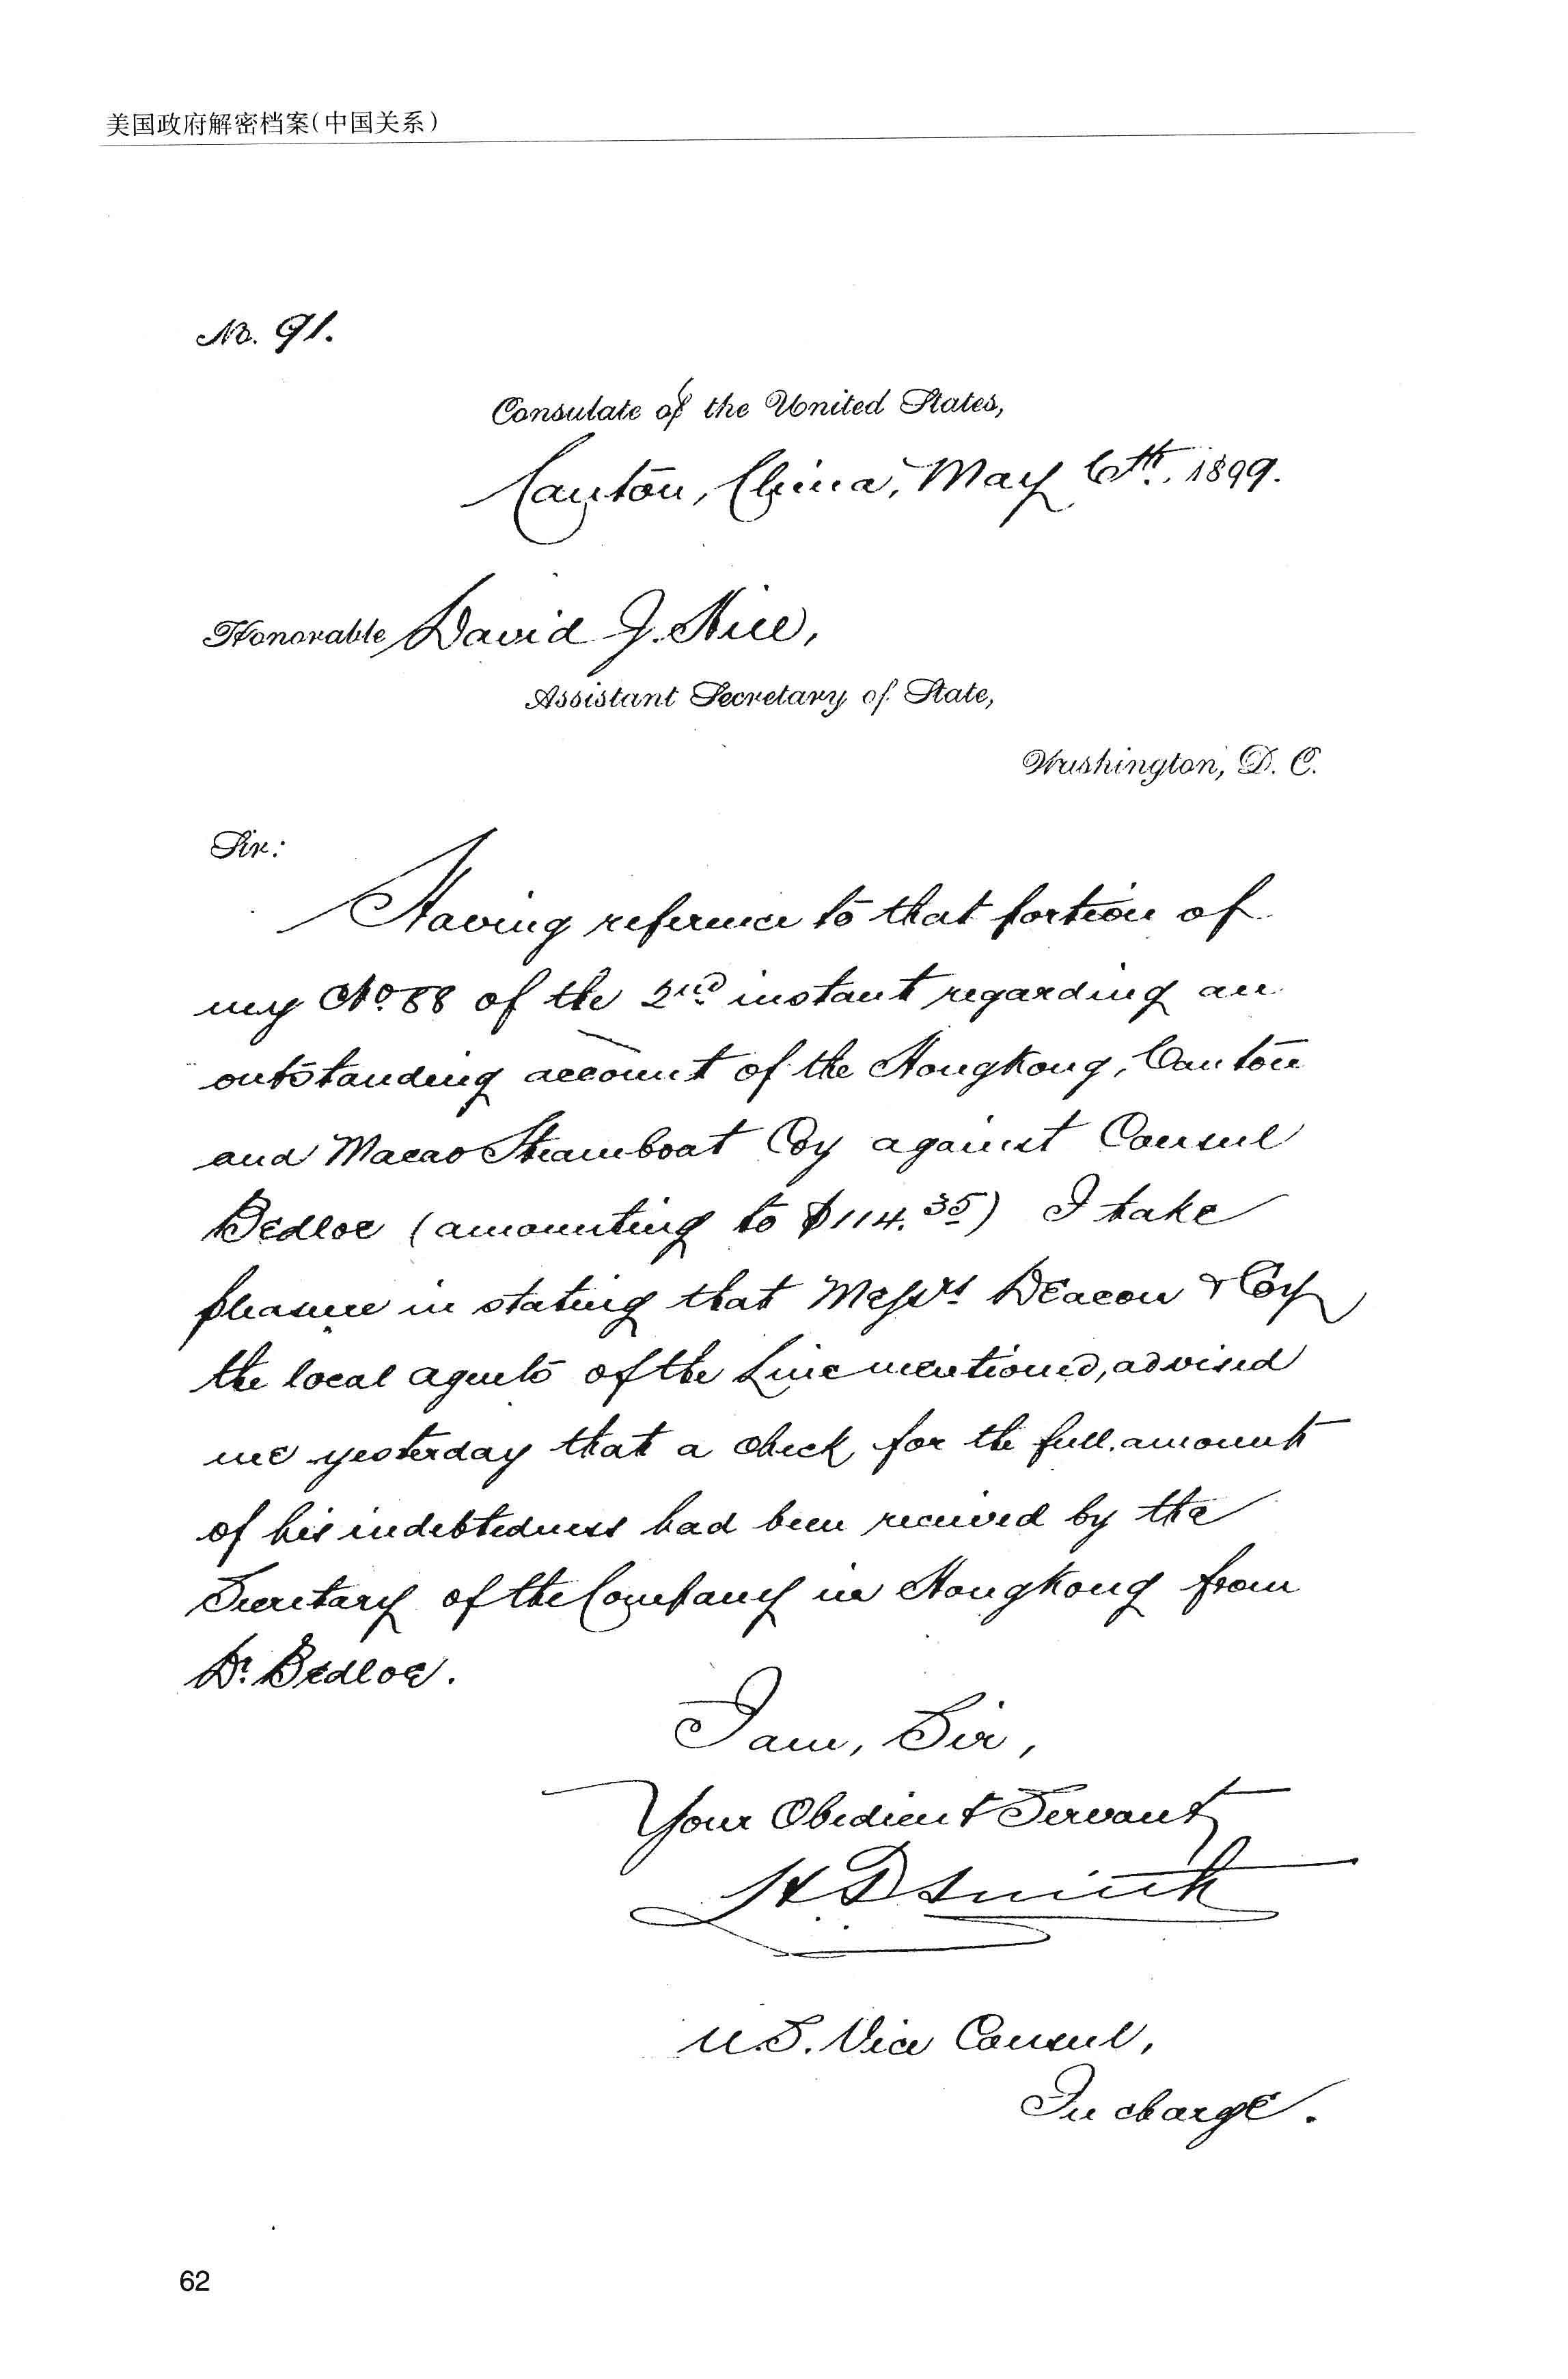 美国政府解密档案(中国关系)
No. 91.
Consulate of the United States,
Canton, China, May 6th. 1899.
Honorable David J. Hill,
Assistant Secretary of State,
Washington, D. C.
Sir:
Having reference to that portion of
my No. 88 of the 2nd instant regarding an
outstanding account of the Hongkong, Canton
and Macao Steamboat Coy against Consul
Bedloe (amounting to $114.35) I take
pleasure in stating that Messrs Deacon & Coy
the local agents of the Line mentioned, advised
me yesterday that a check for the full amount
of his indebtedness had been received by the
Secretary of the Company in Hongkong from
Dr. Bedloe.
I am, Sir,
Your Obedient Servant
H D Smith
U.S. Vice Consul,
In charge.
62